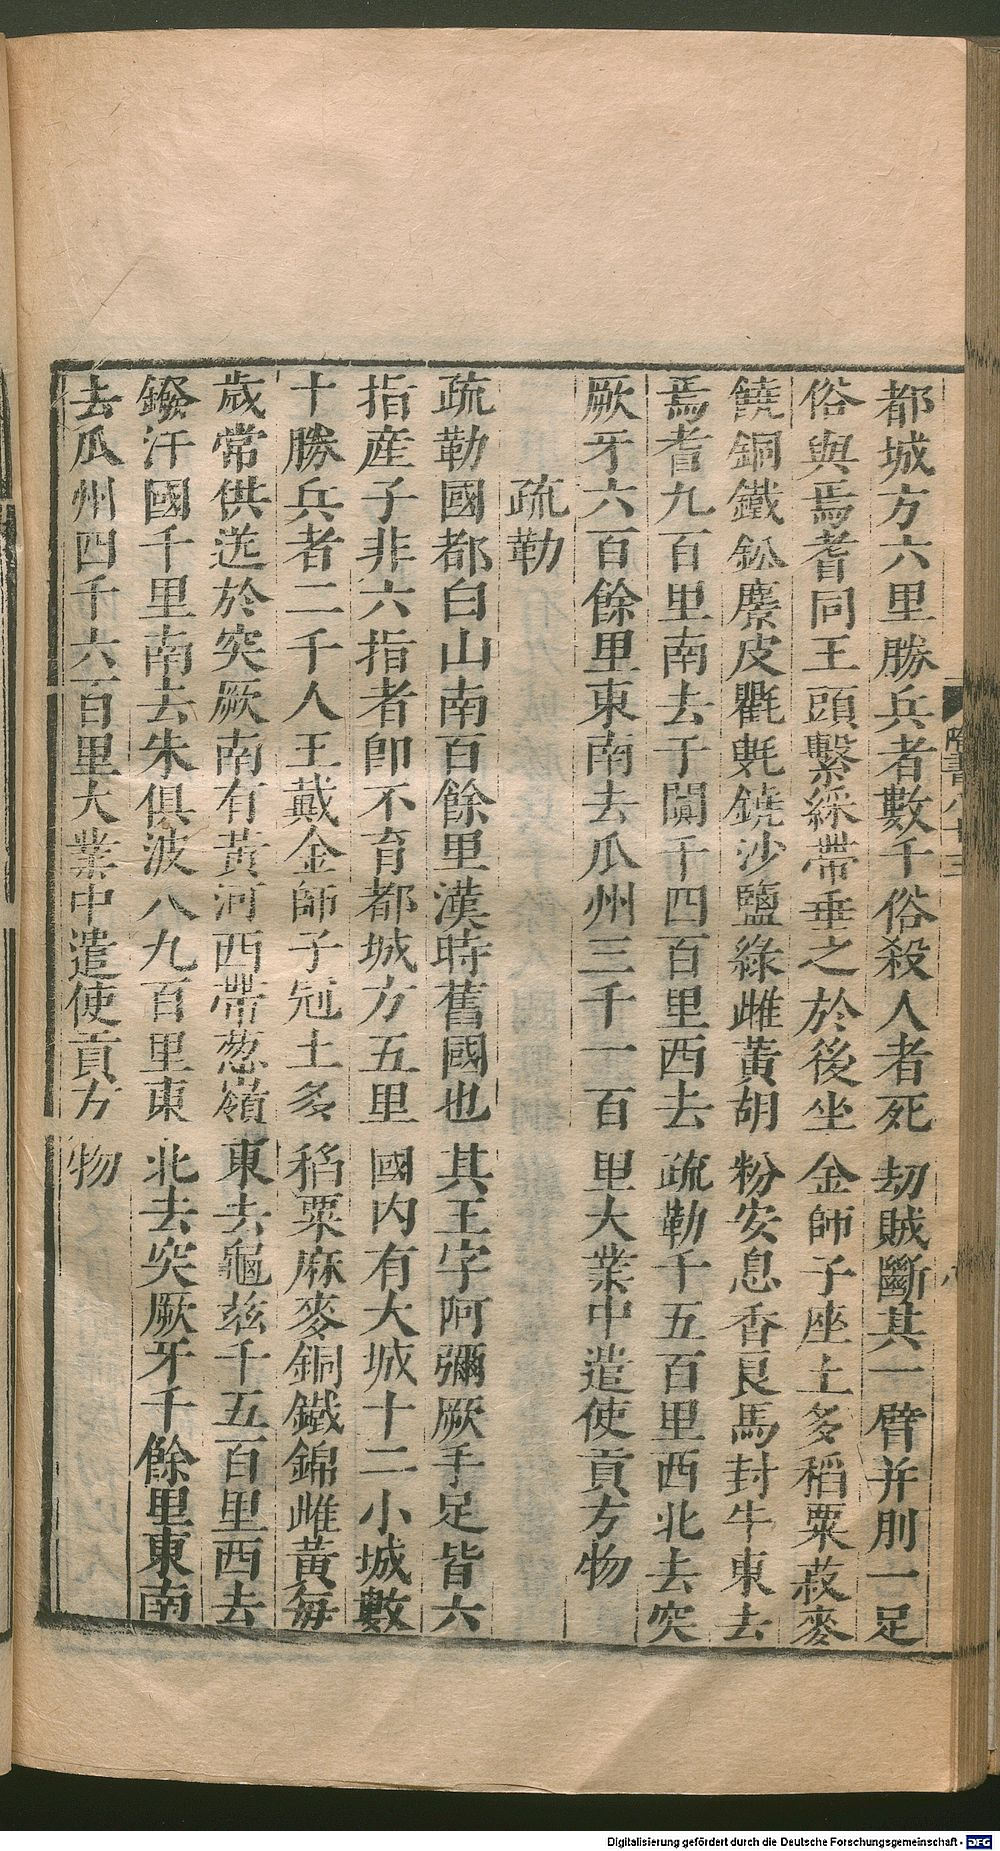 都城方六里勝兵者數千俗殺人者死劫賊斷其一臂并刖一足
俗與焉耆同王頭繫綵帶垂之於後坐金師子座土多稻粟菽麥
饒銅鐵鉛麖皮氍毹鐃沙鹽綠雌黃胡粉安息香良馬封牛東去
焉耆九百里南去于闐千四百里西去疏勒千五百里西北去突
厥牙六百餘里東南去瓜州三千一百里大業中遣使貢方物
疏勒
疏勒國都白山南百餘里漢時舊國也其王字阿彌厥手足皆六
指産子非六指者即不育都城方五里國內有大城十二小城數
十勝兵者二千人王戴金師子冠土多稻粟麻麥銅鐵錦雌黃每
歲常供送於突厥南有黃河西帶葱嶺東去龜玆千五百里西去
鏺汗國千里南去朱俱波八九百里東北去突厥牙千餘里東南
去瓜州四千六百里大業中遣使貢方物
隋書八十三
八
Digitalisierung gefördert durch die Deutsche Forschungsgemeinschaft - DFG